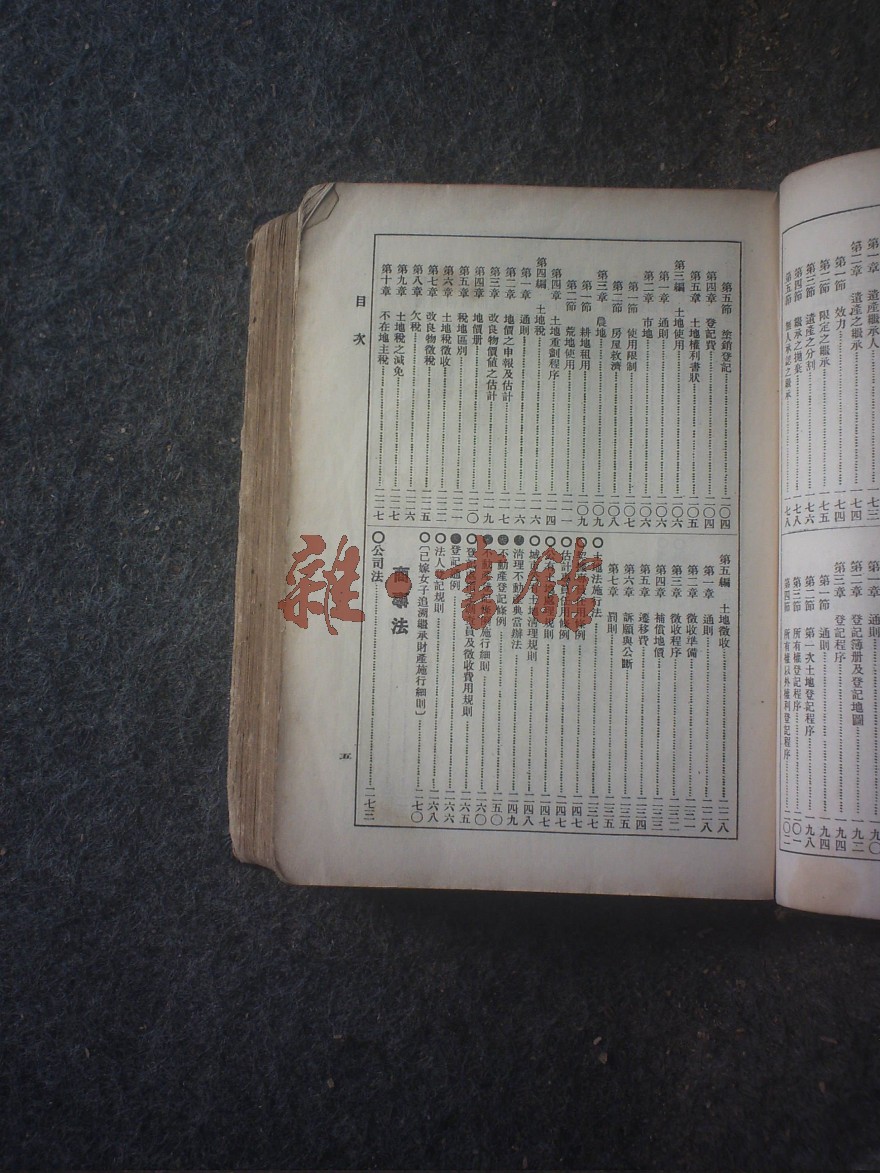 第一章 遺產繼承人……一七三
第二章 遺產之繼承……一七四
第一節 效力……一七四
第二節 限定之繼承……一七五
第三節 遺產之分割……
第四節 繼承之拋棄……一七八
第五節 無人承認之繼承……一七八
第一章 通則……一九〇
第二章 登記簿册及登記地圖……一九二
第三章 登記程序……一九四
第一節 通則……一九四
第二節 第一次土地登記程序……一九八
第三節 所有權登記程序……二〇一
第四節 所有權以外權利登記程序……二〇二
第五節 塗銷登記……二〇四
第四章 登記費……二〇四
第五章 土地權利書狀……二〇五
第三編 土地使用……二〇六
第一章 通則……二〇六
第二章 市地……二〇六
第一節 使用限制……二〇七
第二節 房屋救濟……二〇八
第三章 農地……二〇九
第一節 耕地租用……二〇九
第二節 荒地使用……二一一
第四章 土地重劃程序……二一四
第四編 土地稅……二一六
第一章 通則……二一六
第二章 地價之申報及估計……二一七
第三章 改良物價值之估計……二一九
第四章 地價册……二二〇
第五章 稅地區別……二二一
第六章 土地稅徵收……二二二
第七章 改良物徵稅……二二五
第八章 欠稅……二二六
第九章 土地稅之減免……二二七
第十章 不在地主稅……二二七
第五編 土地徵收……二二八
第一章 通則……二二八
第二章 徵收準備……二三一
第三章 徵收程序……二三二
第四章 補償地價……二三三
第五章 遷移費……二三四
第六章 訴願與公斷……二三五
第七章 罰則……二三五
〇土地法施行法……二三七
條例……二四七
〇估計專員任用條例……二四七
〇公有土地處理規則……二四七
〇城市土地清理規則……二四八
●清理不動產典當辦法……二四九
●不動產登記條例……二五〇
●不動產登記條例施行細則……二六〇
〇登記員及徵收費用規則……二六五
●登記通例……二六六
〇法人登記規則……二六八
〇〔已嫁女子追溯繼承財產施行細則〕……二七〇
商事法
〇公司法……二七三
目次
五
雜·書館